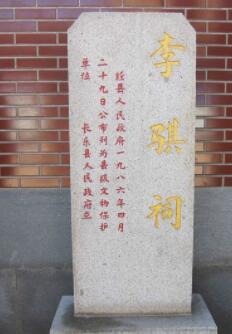 李骐祠
经县人民政府一九八六年四月
二十九日公布列为县级文物保护
单位 长乐县人民政府立